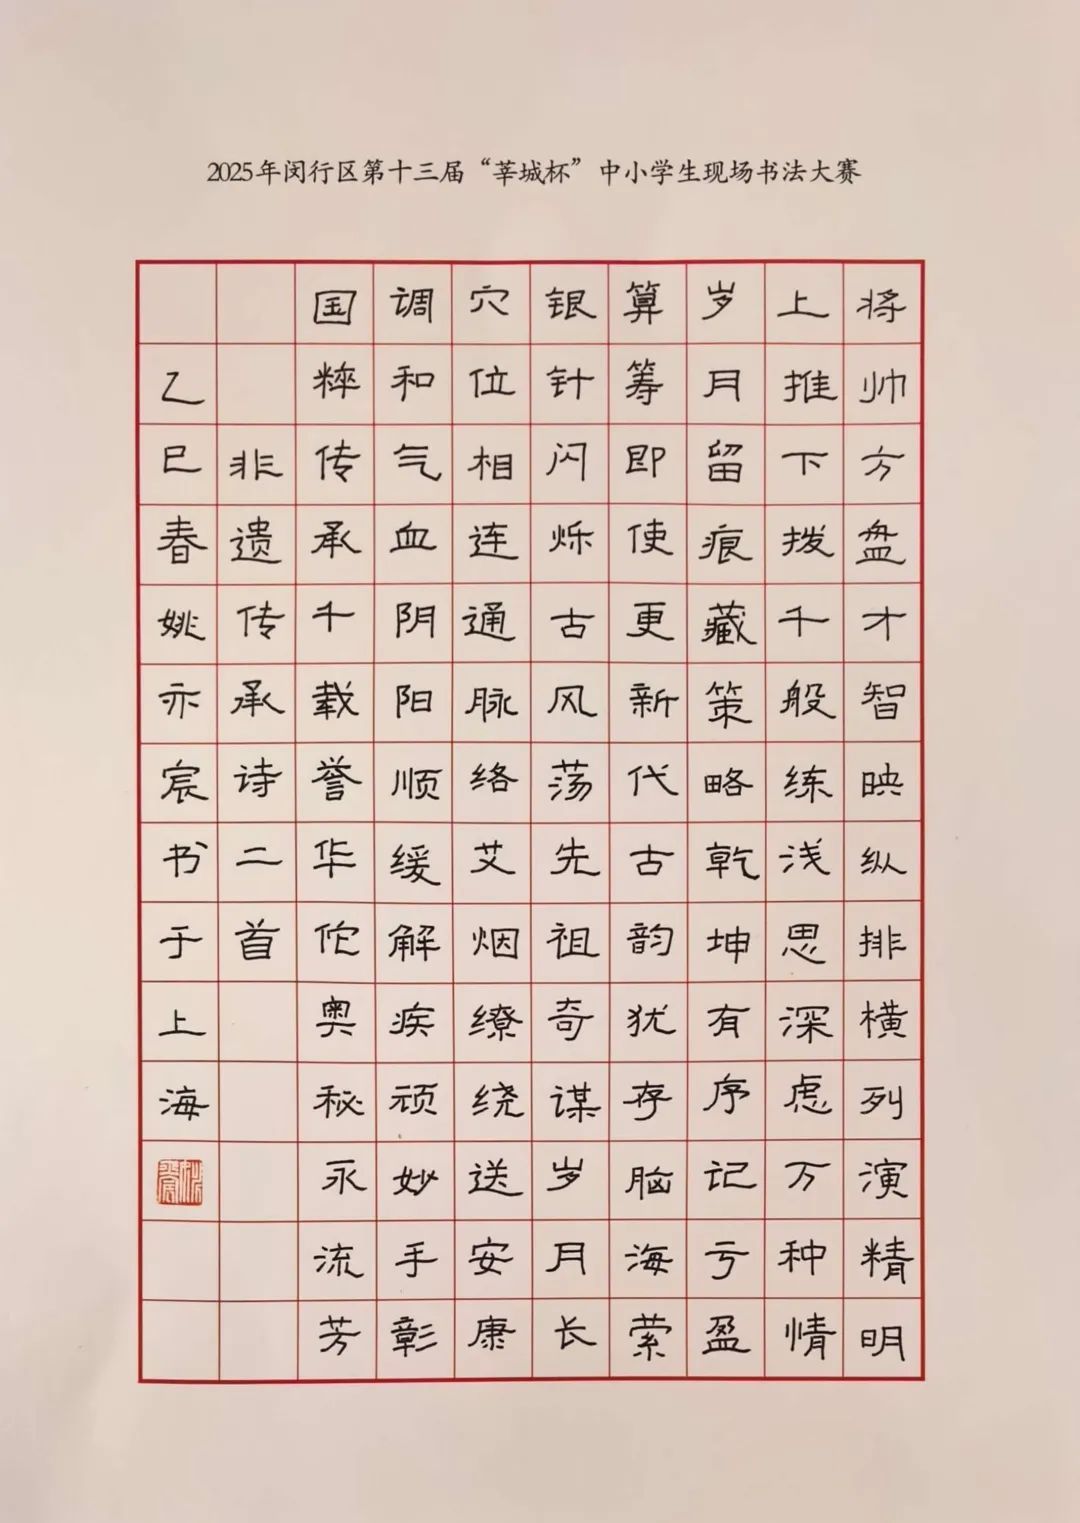 2025年闵行区第十三届“莘城杯”中小学生现场书法大赛
将帅方盘才智映纵排横列演精明
上推下拨千般练浅思深虑万种情
岁月留痕藏策略乾坤有序记亏盈
算筹即使更新代古韵犹存脑海萦
银针闪烁古风荡先祖奇谋岁月长
穴位相连通脉络艾烟缭绕送安康
调和气血阴阳顺缓解疾顽妙手彰
国粹传承千载誉华佗奥秘永流芳
非遗传承诗二首
乙巳春姚亦宸书于上海